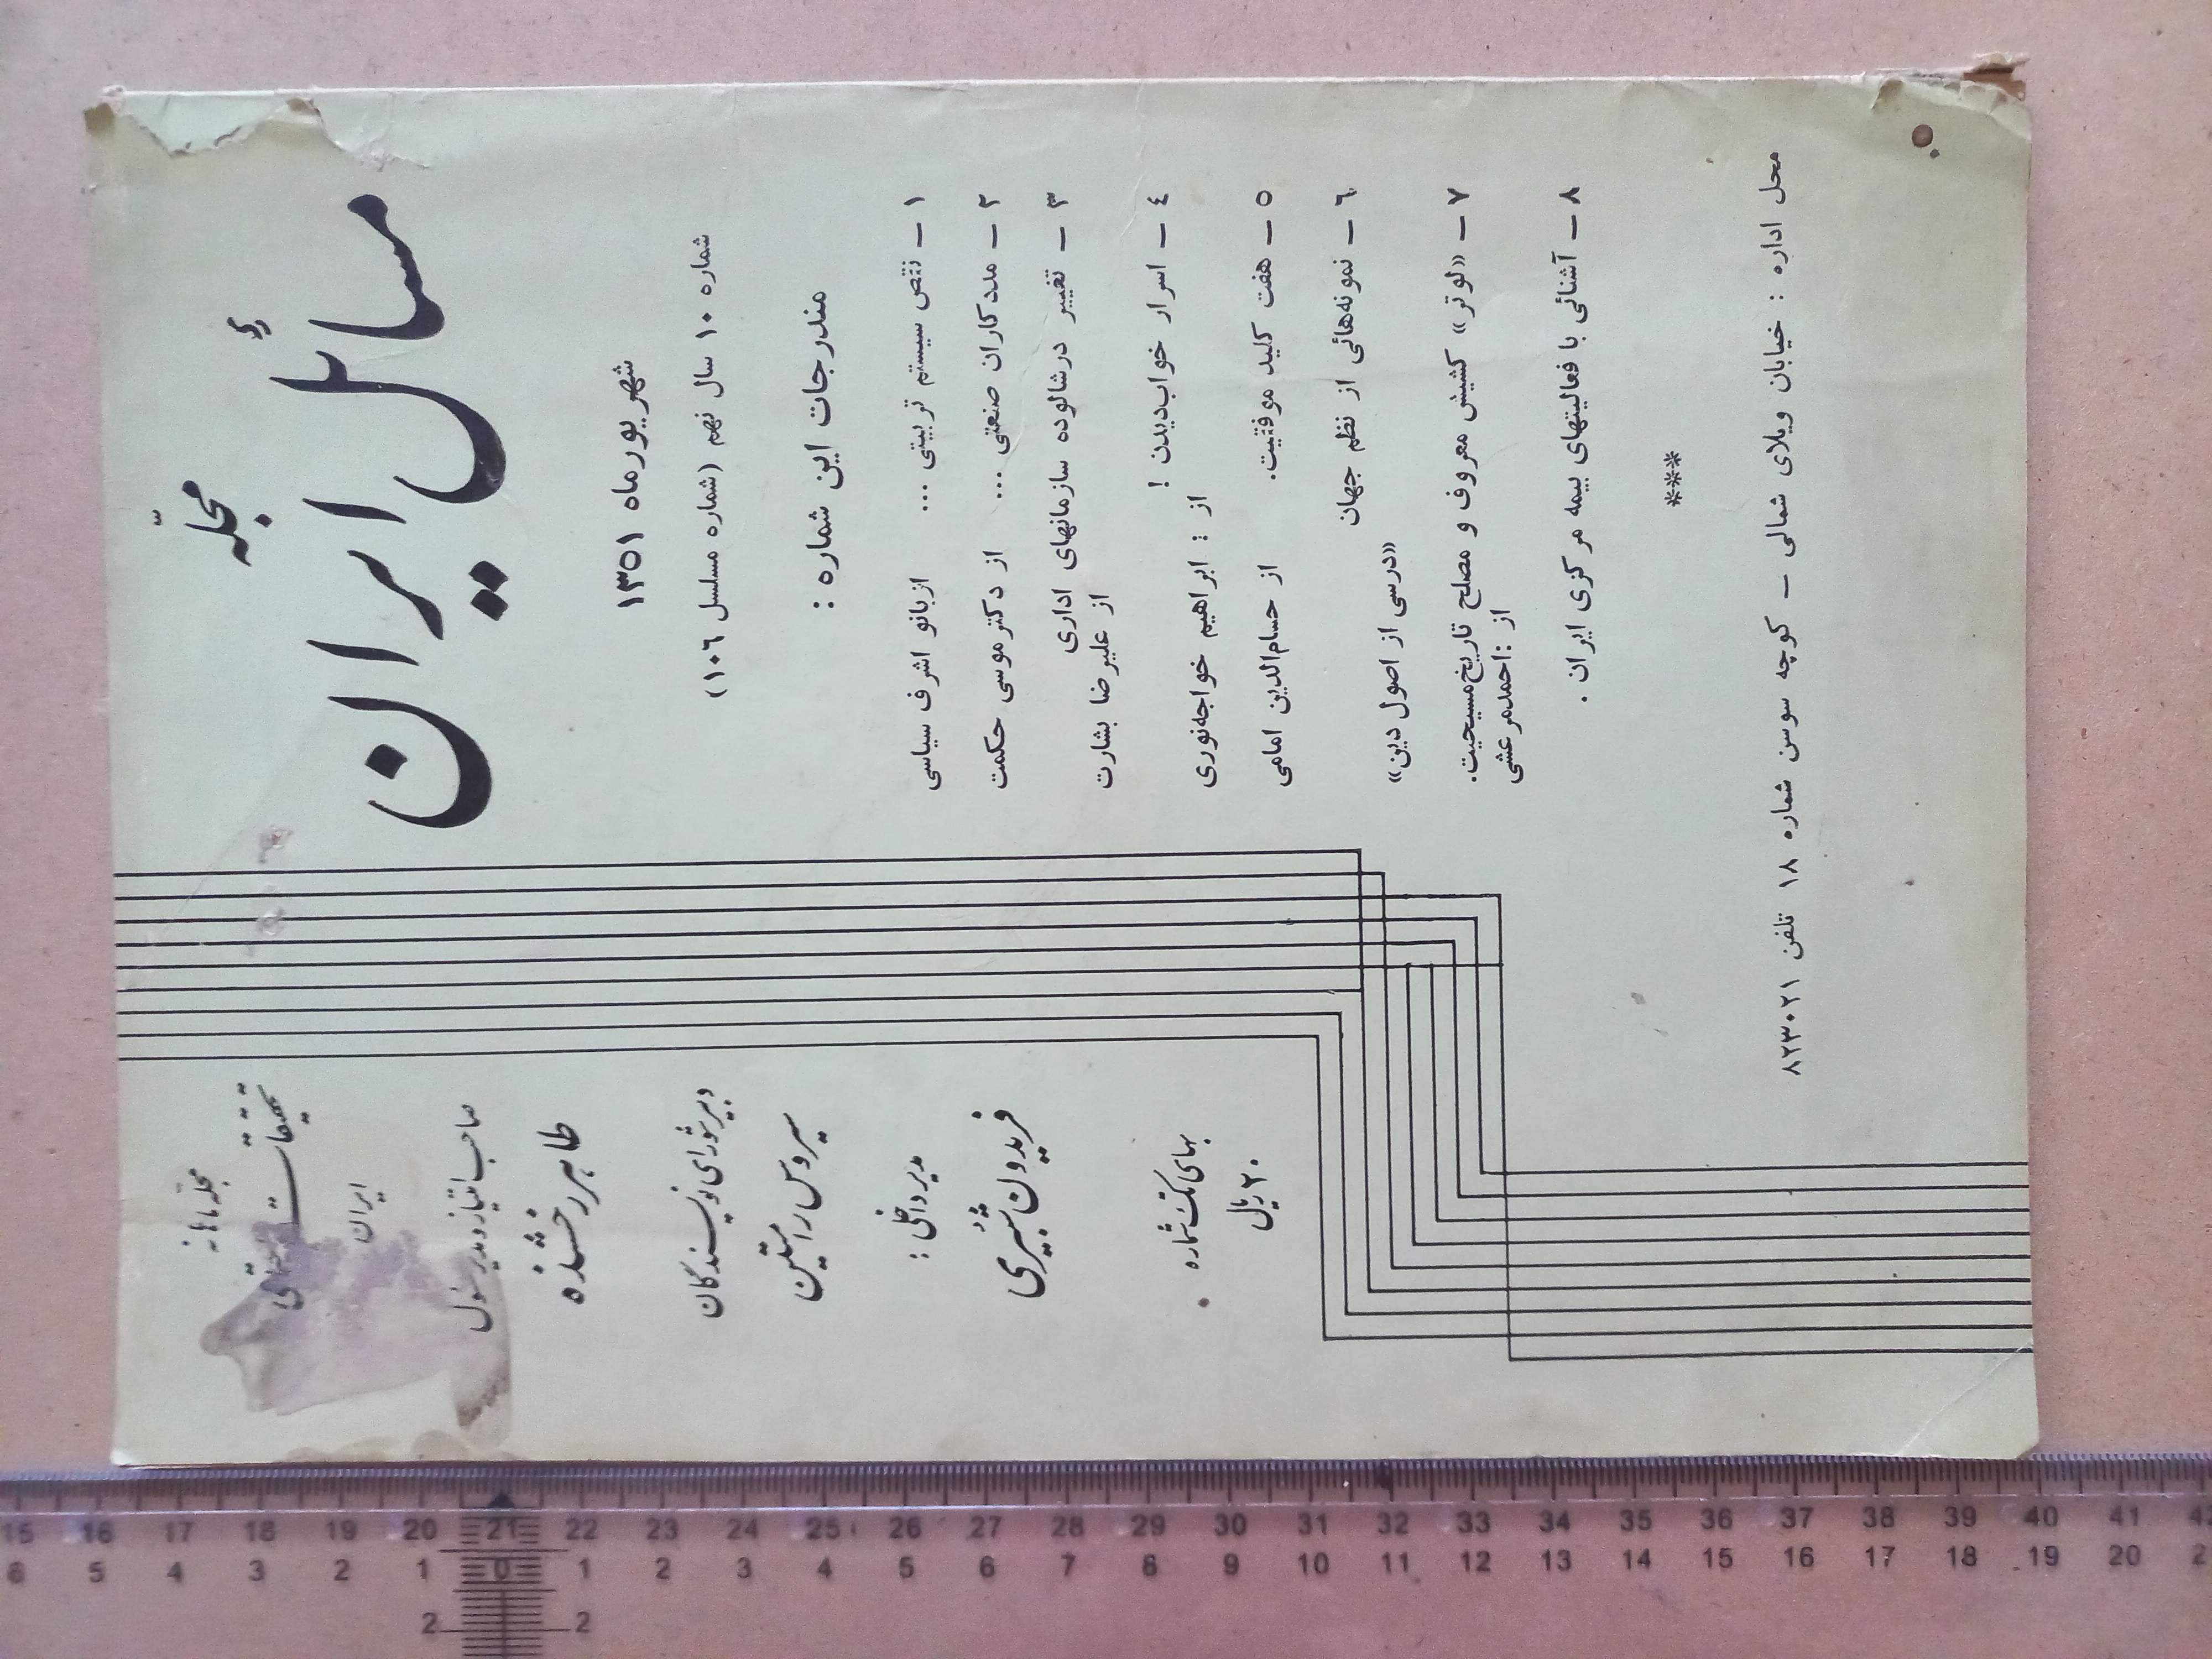 مجلّه
مسائل ایران
شهریورماه ۱۳۵۱
شماره ۱۰ سال نهم (شماره مسلسل ۱۰۶)
مندرجات این شماره :
۱ – نقص سیستم تربیتی ...
ازبانو اشرف سیاسی
۲ – مددکاران صنعتی ...
از دکتر موسی حکمت
۳ – تغییر درشالوده سازمانهای اداری
از علیرضا بشارت
٤ – اسرار خواب‌دیدن !
از : ابراهیم خواجه‌نوری
٥ – هفت کلید موفقیت.
از حسام‌الدین امامی
٦ – نمونه‌هائی از نظم جهان
«درسی از اصول دین»
۷ – «لوتر» کشیش معروف و مصلح تاریخ‌مسیحیت.
از :احمدمرعشی
۸ – آشنائی با فعالیتهای بیمه مرکزی ایران .
***
محل اداره : خیابان ویلای شمالی – کوچه سوسن شماره ۱۸ تلفن ۸۲۳۰۲۱
مجلّه ماهانه
تحقیقات
ایران
صاحب امتیاز و مدیر مسئول
طاهر رخشنده
دبیر شورای نویسندگان
سیروس رامتین
مدیر داخلی :
فریدون شبیری
بهای تک شماره
۲۰ ریال
15 16 17 18 19 20 21 22 23 24 25 26 27 28 29 30 31 32 33 34 35 36 37 38 39 40 41
6 5 4 3 2 1 0 1 2 3 4 5 6 7 8 9 10 11 12 13 14 15 16 17 18 19 20
2 2